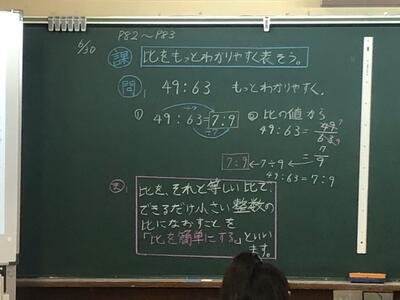 P82～P83
6/30
課 比をもっとわかりやすく表そう。
問 49:63 もっとわかりやすく。
① 49:63=7:9
÷7
÷7
② 比の値から
49:63=49/63
7
9
=7/9
7:9←7÷9←
49:63=7:9
比を、それと等しい比で、
できるだけ小さい整数の
比になおすことを
「比を簡単にする。」といい
ます。